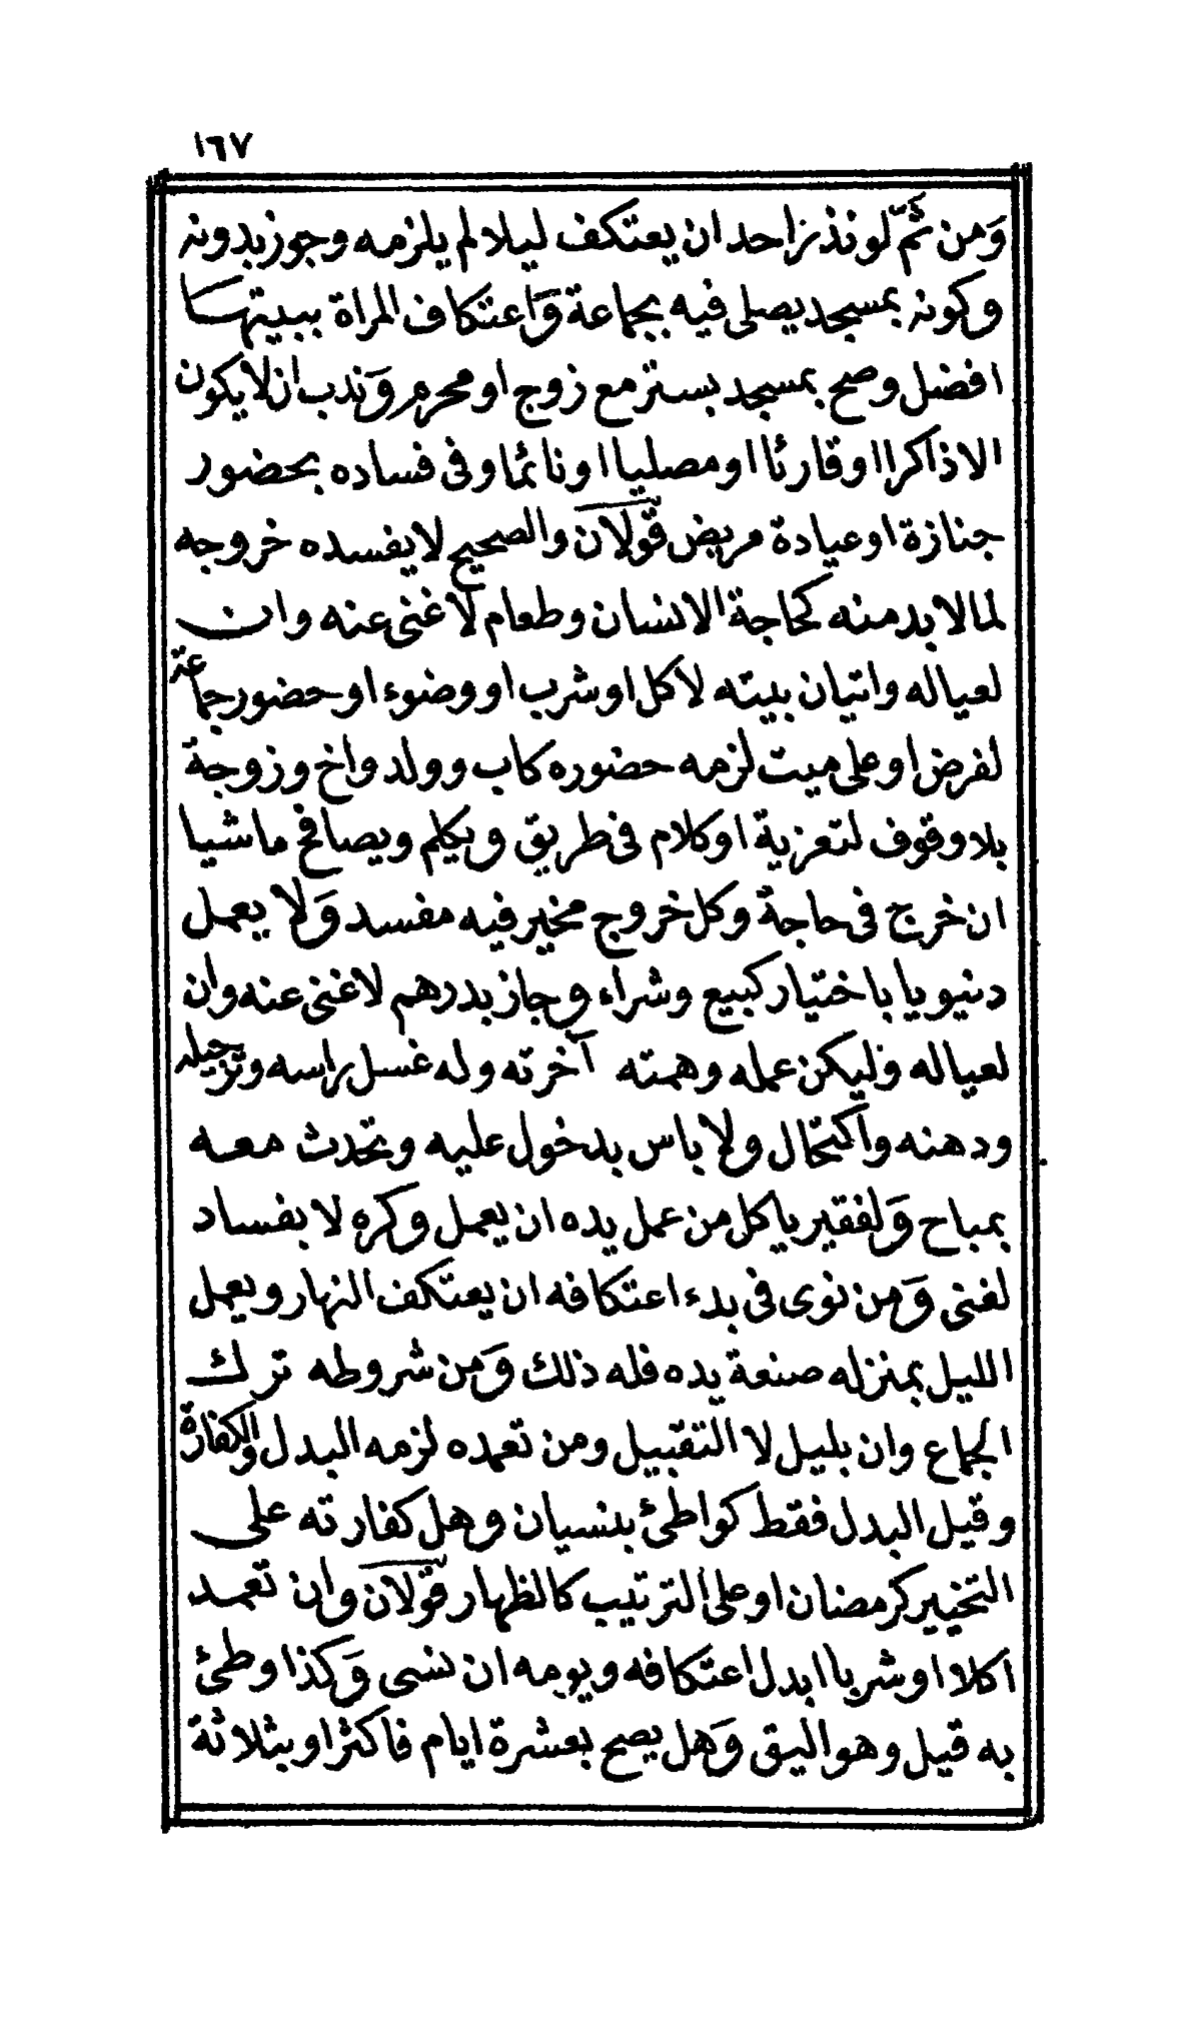 ١٦٧
وَمن ثَمّ لو نذر احد ان يعتكف ليلا لم يلزمه وجوز بدونه
وكونه بمسجد يصلى فيه بجماعة وَاعتكاف المراة ببيتها
افضل وصح بمسجد بستر مع زوج او محرم وَندب ان لا يكون
الا ذاكرا او قارئا او مصليا او نائما وفى فساده بحضور
جنازة او عيادة مريض قولان والصحيح لا يفسده خروجه
لما لا بد منه كحاجة الانسان وطعام لا غنى عنه وان
لعياله واتيان بيته لاكل او شرب او وضوء او حضور جماعة
لفرض او على ميت لزمه حضوره كاب وولد واخ وزوجة
بلا وقوف لتعزية او كلام فى طريق ويكلم ويصافح ماشيا
ان خرج فى حاجة وكل خروج مخير فيه مفسد وَلا يعمل
دنيويا باختيار كبيع وشراء وجاز بدرهم لا غنى عنه وان
لعياله وليكن عمله وهمته آخرته وله غسل راسه وترجيله
ودهنه واكتحال ولا باس بدخول عليه وتحدث معه
بمباح وَلفقير ياكل من عمل يده ان يعمل وكره لا بفساد
لغنى وَمن نوى فى بدء اعتكافه ان يعتكف النهار ويعمل
الليل بمنزله صنعة يده فله ذلك وَمن شروطه ترك
الجماع وان بليل لا التقبيل ومن تعمده لزمه البدل والكفارة
وقيل البدل فقط كواطئ بنسيان وهل كفارته على
التخيير كرمضان او على الترتيب كالظهار قولان وان تعمد
اكلا او شربا ابدل اعتكافه ويومه ان نسى وَكذا وطئ
به قيل وهو اليق وَهل يصح بعشرة ايام فاكثر او بثلاثة